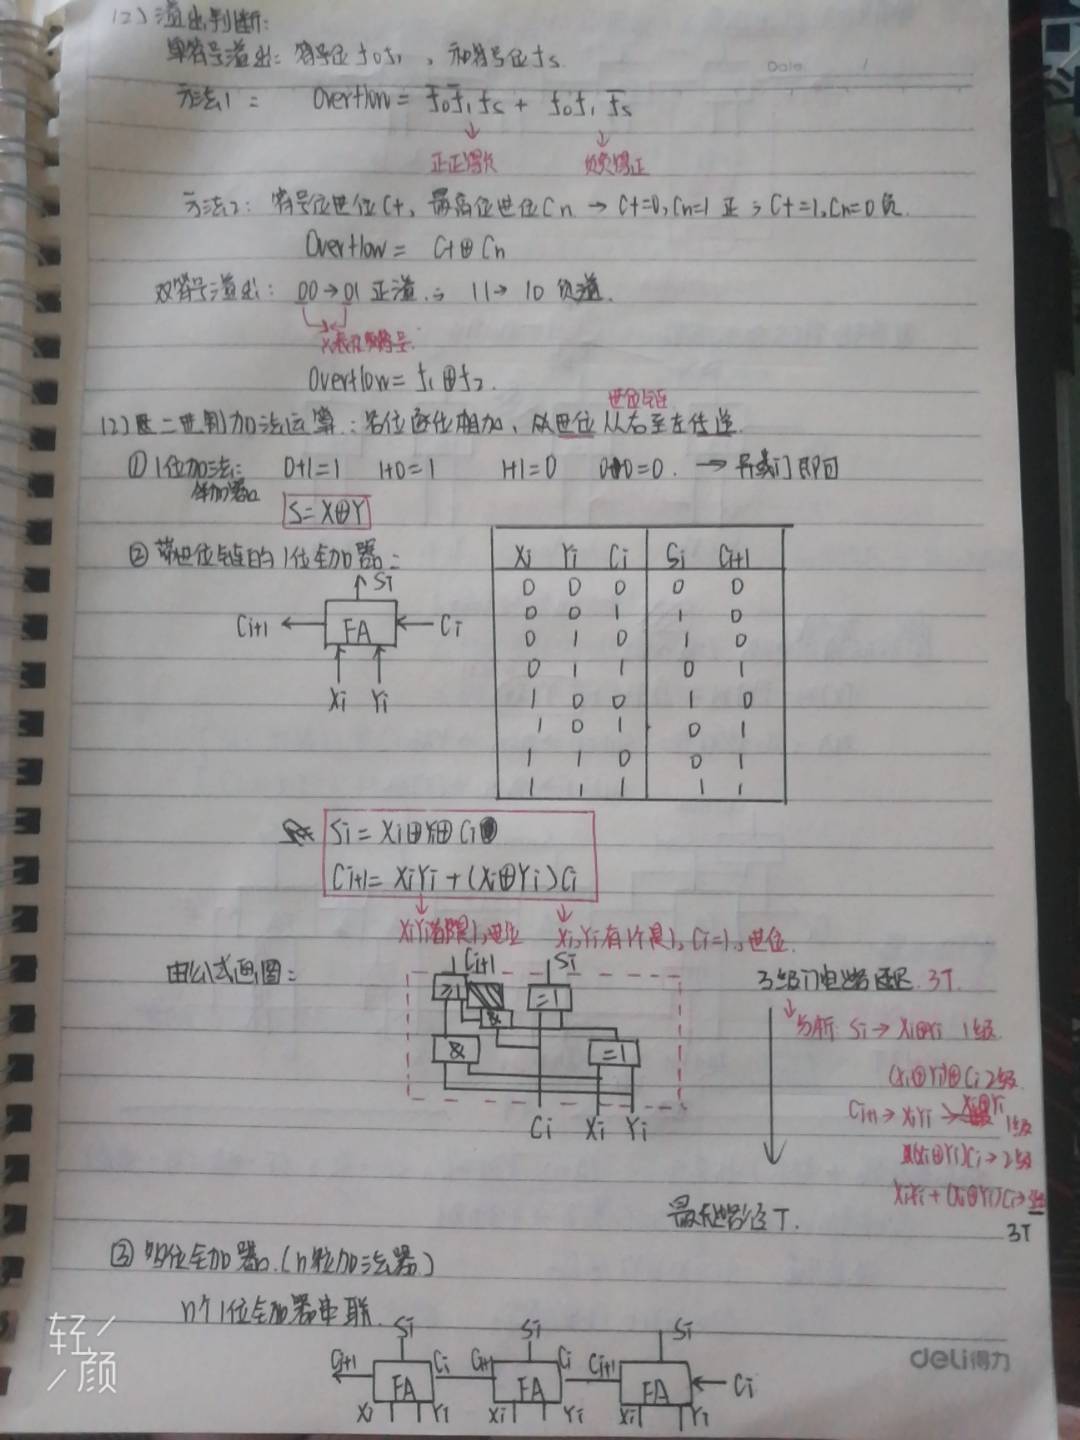 (2) 溢出判断:
单符号溢出: 符号位 f0f1 , 和符号位 fs.
Date /
方法1: Overflow = f̄0f̄1fs + f0f1f̄s
正正得负 负负得正
方法2: 符号位进位Cf, 最高位进位Cn → Cf=0,Cn=1 正; Cf=1,Cn=0 负.
Overflow = Cf⊕Cn
双符号溢出: 00→01 正溢; 11→10 负溢.
Overflow = f1⊕f2.
进位链
(2) 二进制加法运算: 各位逐位相加, 从进位从右至左传递.
① 1位加法: 0+1=1 1+0=1 1+1=0 0+0=0. → 异或门即可
半加器
S=X⊕Y
② 带进位链的1位全加器:
Si
Ci+1 FA Ci
Xi Yi
Xi Yi Ci Si Ci+1
0 0 0 0 0
0 0 1 1 0
0 1 0 1 0
0 1 1 0 1
1 0 0 1 0
1 0 1 0 1
1 1 0 0 1
1 1 1 1 1
Si = Xi⊕Yi⊕Ci
Ci+1 = XiYi + (Xi⊕Yi)Ci
XiYi都是1,进位 Xi,Yi有1个是1, Ci=1, 进位.
由公式画图:
Ci+1 Si
≥1 & =1
& =1
Ci Xi Yi
3级门电路延迟. 3T.
分析: Si → Xi⊕Yi 1级
(Xi⊕Yi)⊕Ci 2级
Ci+1 → XiYi → Xi⊕Yi 1级
(Xi⊕Yi)Ci → 2级
XiYi + (Xi⊕Yi)Ci → 3级
3T
最长路径T.
③ n位全加器. (n位加法器)
n个1位全加器串联.
Si Si Si
Ci+1 FA Ci Ci+1 FA Ci Ci+1 FA Ci
Xi Yi Xi Yi Xi Yi
轻颜
deli得力